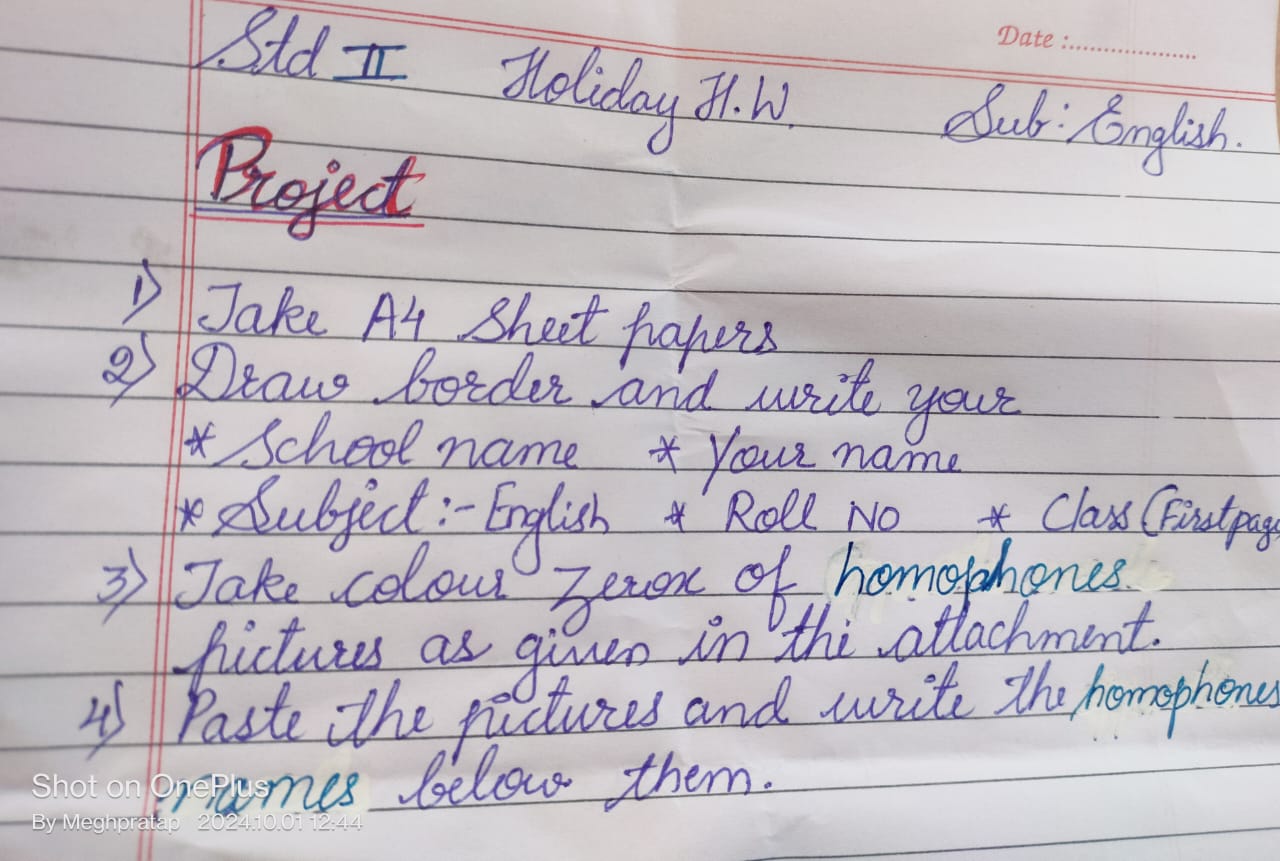 Date :......................
Std II Holiday H.W. Sub: English.
Project
1) Take A4 Sheet papers
2) Draw border and write your
* School name * Your name
* Subject :- English * Roll No * Class (First page
3) Take colour Zerox of homophones
pictures as given in the attachment.
4) Paste the pictures and write the homophones
names below them.
Shot on OnePlus
By Meghpratap 2024.10.01 12:44